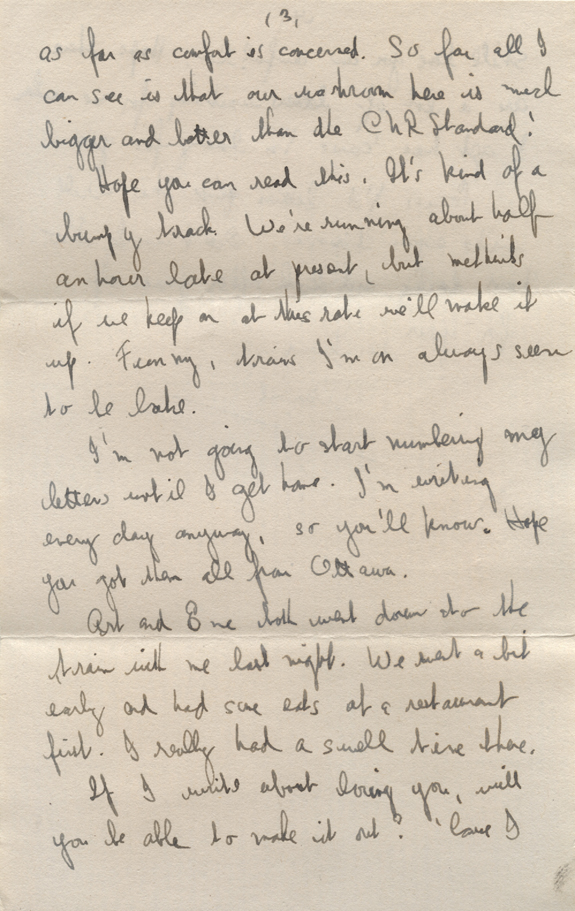 (3)
as far as comfort is concerned. So far all I
can see is that our washroom here is much
bigger and better than the CNR Standard!
Hope you can read this. It's kind of a
bumpy track. We're running about half
an hour late at present, but methinks
if we keep on at this rate we'll make it
up. Funny, trains I'm on always seem
to be late.
I'm not going to start numbering my
letters until I get home. I'm writing
every day anyway, so you'll know. Hope
you got them all from Ottawa.
Art and Eve both went down to the
train with me last night. We went a bit
early and had some eats at a restaurant
first. I really had a swell time there.
If I write about loving you, will
you be able to make it out? 'Cause I